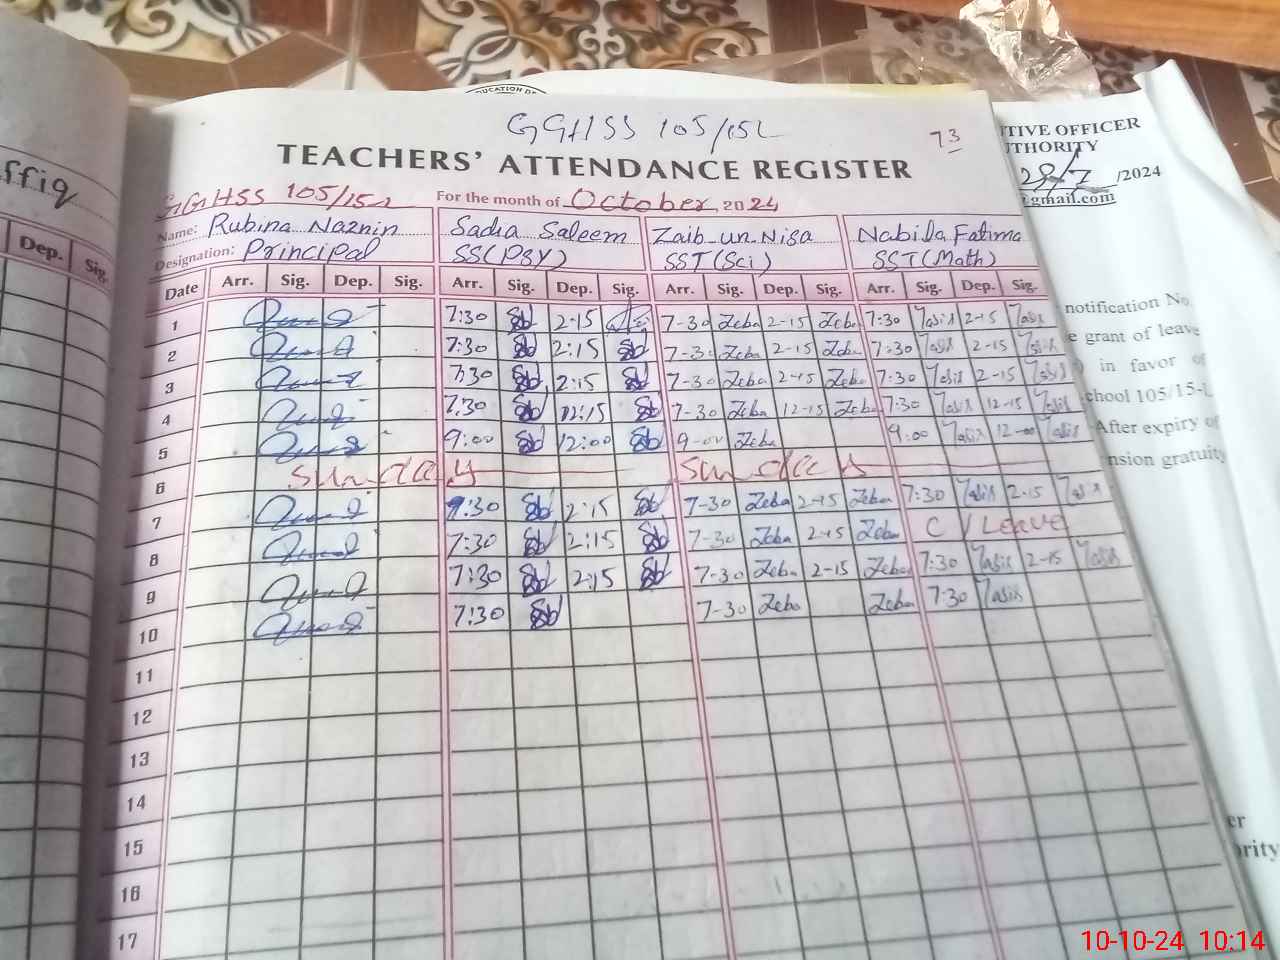 GGHSS 105/15L
73
TEACHERS' ATTENDANCE REGISTER
GGHSS 105/15L For the month of October, 2024
Name: Rubina Naznin Sadia Saleem Zaib-un-Nisa Nabila Fatima
Designation: Principal SS(Psy) SST(Sci) SST(Math)
Date Arr. Sig. Dep. Sig. Arr. Sig. Dep. Sig. Arr. Sig. Dep. Sig. Arr. Sig. Dep. Sig.
1 7:30 2-15 7-30 Zeba 2-15 Zeba 7:30 2-15
2 7:30 2:15 7-30 Zeba 2-15 Zeba 7:30 2-15
3 7:30 2:15 7-30 Zeba 2-15 Zeba 7:30 2-15
4 7:30 12:15 7-30 Zeba 12-15 Zeba 7:30 12-15
5 9:00 12:00 9-00 Zeba 9:00 12-00
6 Sunday Sunday
7 7:30 2:15 7-30 Zeba 2-15 Zeba 7:30 2-15
8 7:30 2:15 7-30 Zeba 2-15 Zeba C/Leave
9 7:30 2:15 7-30 Zeba 2-15 Zeba 7:30 2-15
10 7:30 7-30 Zeba Zeba 7:30
11
12
13
14
15
16
17
ffiq
Dep. Sig.
UCATION DE
TIVE OFFICER
THORITY
/2024
gmail.com
notification No
e grant of leave
) in favor of
chool 105/15-L
After expiry of
nsion gratuity
er
ority
10-10-24 10:14